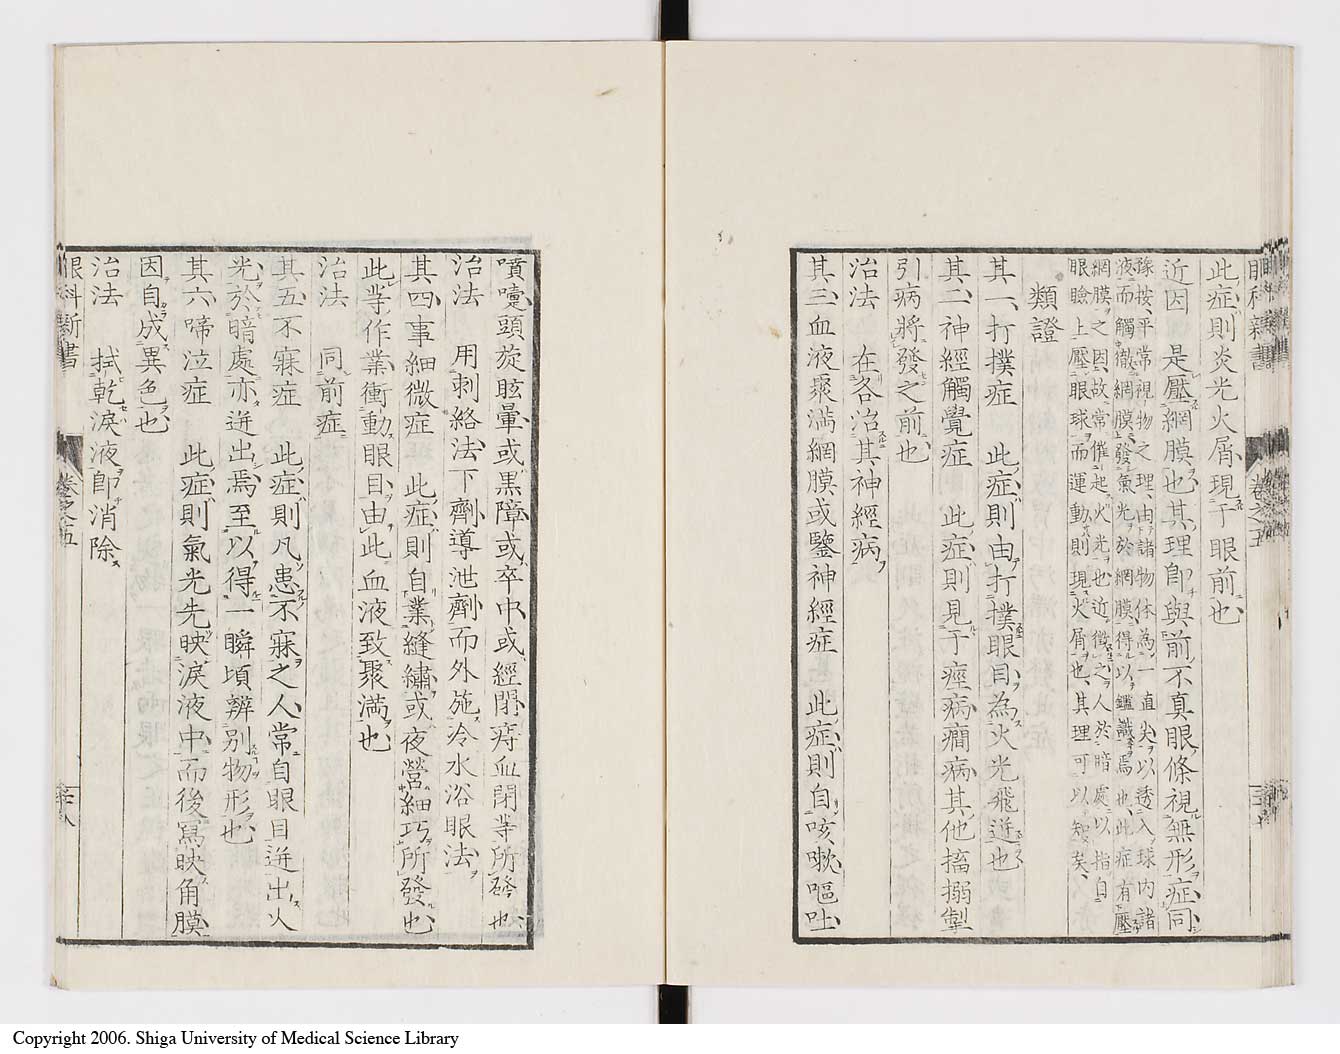 眼科新書
卷之五
此症則炎光火屑現于眼前也
近因 是壓網膜也其理卽與前不真眼條視無形症同
豫按平常視物之理由諸物体為一直尖以透入球内諸
液而觸徹網膜發氣光於網膜得以鑑識焉也此症有壓
網膜之因故常催起火光也近徴之人於暗處以指自
眼瞼上壓眼球而運動則現火屑也其理可以知矣
類證
其一打撲症 此症則由打撲眼目為火光飛迸也
其二神經觸覺症 此症則見于癦病癇病其他搐搦掣
引病將發之前也
治法 在各治其神經病
其三血液聚満網膜或鑒神經症 此症則自咳嗽嘔吐
噴嚏頭旋眩暈或黒障或卒中或經閉痔血閉等所發也
治法 用刺絡法下劑導泄劑而外施冷水浴眼法
其四事細微症 此症則自業縫繡或夜營細巧所發也
此等作業衝動眼目由此血液致聚満也
治法 同前症
其五不寐症 此症則凡患不寐之人常自眼目迸出火
光於暗處亦迸出焉至以得一瞬頃辨別物形也
其六啼泣症 此症則氣光先映淚液中而後寫映角膜
因自成異色也
治法 拭乾淚液卽消除
眼科新書
卷之五
二十八